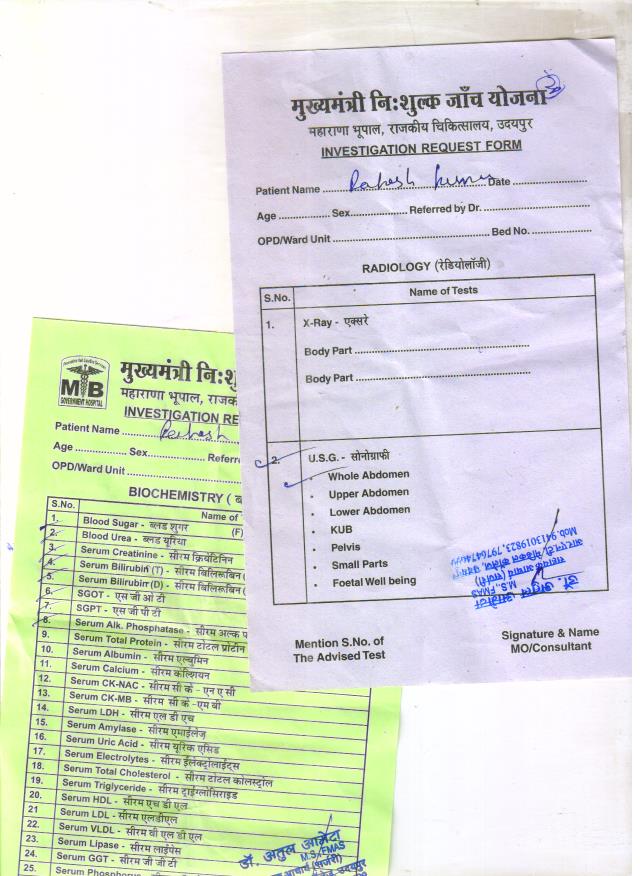 मुख्यमंत्री निःशुल्क जाँच योजना
महाराणा भूपाल, राजकीय चिकित्सालय, उदयपुर
INVESTIGATION REQUEST FORM
Patient Name Rakesh Kumar Date
Age Sex Referred by Dr.
OPD/Ward Unit Bed No.
RADIOLOGY (रेडियोलॉजी)
S.No. Name of Tests
1. X-Ray - एक्सरे
Body Part
Body Part
2. U.S.G. - सोनोग्राफी
Whole Abdomen
Upper Abdomen
Lower Abdomen
KUB
Pelvis
Small Parts
Foetal Well being
डॉ. अतुल आमेटा
M.S., FMAS
सहायक आचार्य (सर्जरी)
Mob.9413019823,
Mention S.No. of
The Advised Test
Signature & Name
MO/Consultant
MB
GOVERNMENT HOSPITAL
मुख्यमंत्री निःशु
महाराणा भूपाल, राजक
INVESTIGATION RE
Patient Name Rakesh
Age Sex Referr
OPD/Ward Unit
BIOCHEMISTRY ( ब
S.No. Name of
1. Blood Sugar - ब्लड शुगर (F)
2. Blood Urea - ब्लड यूरिया
3. Serum Creatinine - सीरम क्रियेटिनिन
4. Serum Bilirubin (T) - सीरम बिलिरूबिन (
5. Serum Bilirubin (D) - सीरम बिलिरूबिन (
6. SGOT - एस जी ओ टी
7. SGPT - एस जी पी टी
8. Serum Alk. Phosphatase - सीरम अल्क प
9. Serum Total Protein - सीरम टोटल प्रोटीन
10. Serum Albumin - सीरम एल्बुमिन
11. Serum Calcium - सीरम केल्शियन
12. Serum CK-NAC - सीरम सी के - एन ए सी
13. Serum CK-MB - सीरम सी के -एम बी
14. Serum LDH - सीरम एल डी एच
15. Serum Amylase - सीरम एमाईलेज
16. Serum Uric Acid - सीरम यूरिक एसिड
17. Serum Electrolytes - सीरम ईलेक्ट्रोलाईट्स
18. Serum Total Cholesterol - सीरम टोटल कोलस्ट्रोल
19. Serum Triglyceride - सीरम ट्राईग्लोसिराइड
20. Serum HDL - सीरम एच डी एल
21 Serum LDL - सीरम एलडीएल
22. Serum VLDL - सीरम वी एल डी एल
23. Serum Lipase - सीरम लाईपेस
24. Serum GGT - सीरम जी जी टी
25. Serum Phosphorus
डॉ. अतुल आमेटा
M.S., FMAS
आचार्य (सर्जरी)